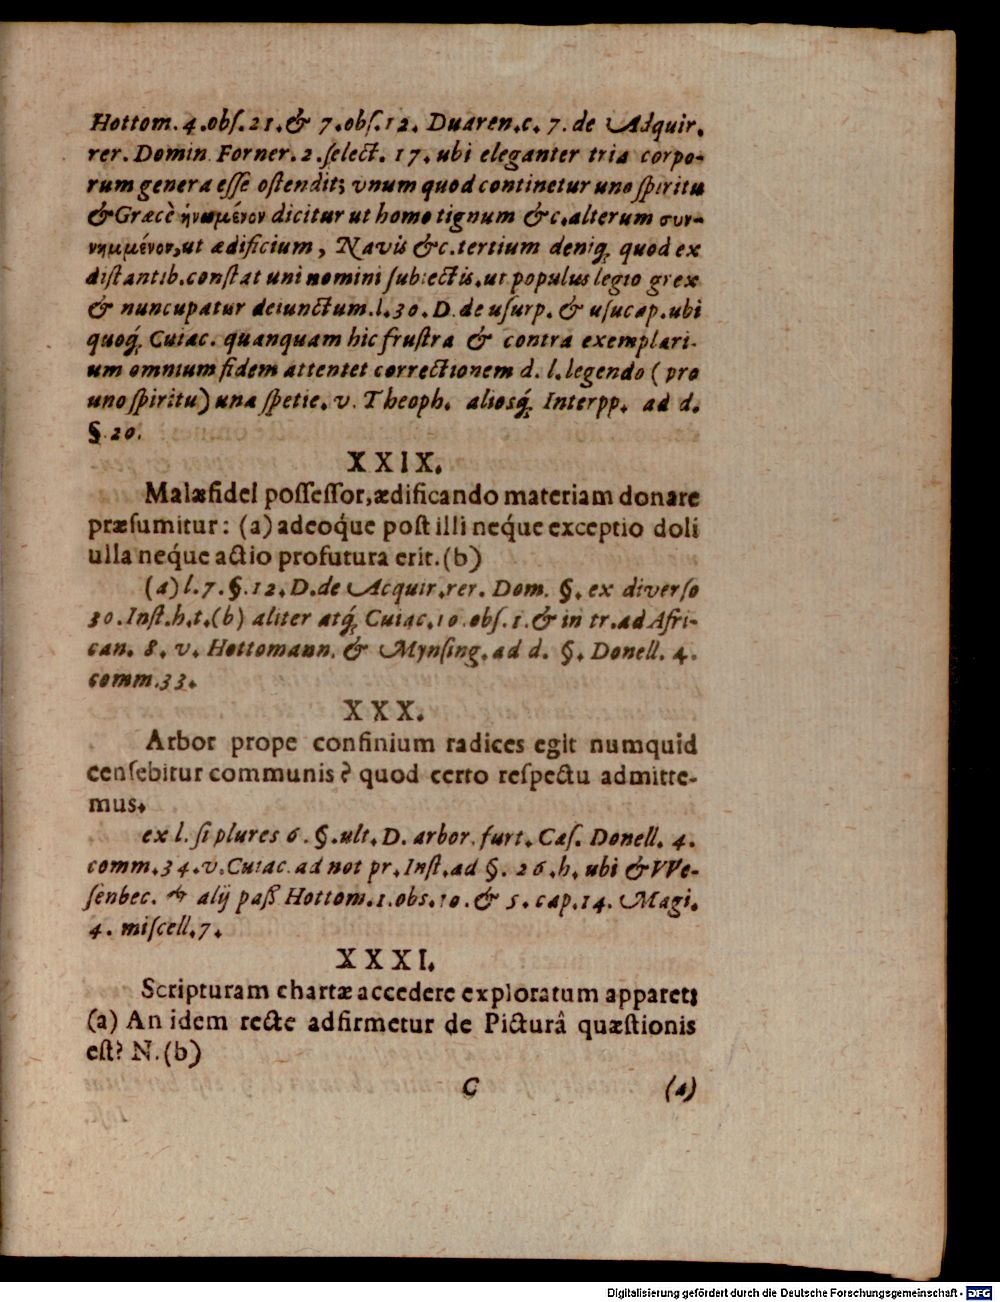 Hottom. 4. obſ. 21. & 7. obſ. 12. Duaren. c. 7. de Adquir.
rer. Domin. Forner. 2. ſelect. 17. ubi eleganter tria corpo-
rum genera eſſe oſtendit; vnum quod continetur uno ſpiritu
& Græcè ἡνωμένον dicitur ut homo tignum &c. alterum συν-
νημμένον, ut ædificium, Navis &c. tertium deniq́; quod ex
diſtantib. conſtat uni nomini ſubiectis. ut populus legio grex
& nuncupatur deiunctum. l. 30. D. de uſurp. & uſucap. ubi
quoq́; Cuiac. quanquam hic fruſtra & contra exemplari-
um omnium fidem attentet correctionem d. l. legendo (pro
uno ſpiritu) una ſpetie. v. Theoph. aliosq́; Interpp. ad d.
§. 20.
XXIX.
Malæfidei poſſeſſor, ædificando materiam donare
præſumitur: (a) adeoq́ue poſt illi neq́ue exceptio doli
ulla neq́ue actio profutura erit. (b)
(a) l. 7. §. 12. D. de Acquir. rer. Dom. §. ex diverſo
30. Inſt. h. t. (b) aliter atq́; Cuiac. 10. obſ. 1. & in tr. ad Afri-
can. 8. v. Hottomann. & Mynſing. ad d. §. Donell. 4.
comm. 33.
XXX.
Arbor prope confinium radices egit numquid
cenſebitur communis? quod certo reſpectu admitte-
mus.
ex l. ſi plures 6. §. ult. D. arbor. furt. Caſ. Donell. 4.
comm. 34. v. Cuiac. ad not pr. Inſt. ad §. 26. h. ubi & VVe-
ſenbec. & alij paß Hottom. 1. obs. 10. & 5. cap. 14. Magi.
4. miſcell. 7.
XXXI.
Scripturam chartæ accedere exploratum apparet;
(a) An idem recte adfirmetur de Picturâ quæſtionis
eſt? N. (b)
C (a)
Digitalisierung gefördert durch die Deutsche Forschungsgemeinschaft - DFG